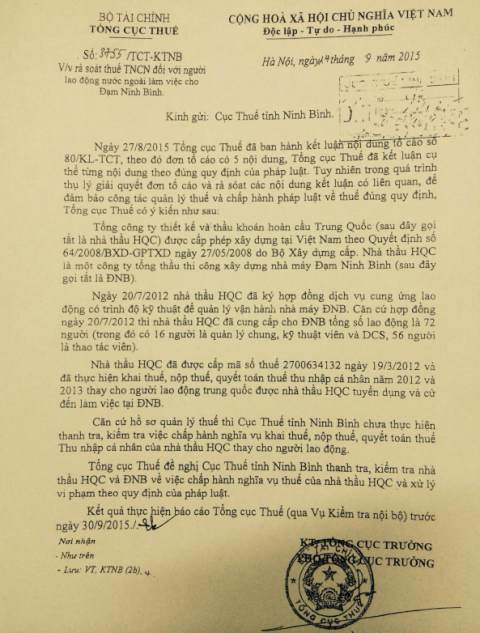 BỘ TÀI CHÍNH
TỔNG CỤC THUẾ
CỘNG HOÀ XÃ HỘI CHỦ NGHĨA VIỆT NAM
Độc lập - Tự do - Hạnh phúc
Số: 3755/TCT-KTNB
V/v rà soát thuế TNCN đối với người
lao động nước ngoài làm việc cho
Đạm Ninh Bình.
Hà Nội, ngày 14 tháng 9 năm 2015
Kính gửi: Cục Thuế tỉnh Ninh Bình.
Ngày 27/8/2015 Tổng cục Thuế đã ban hành kết luận nội dung tố cáo số
80/KL-TCT, theo đó đơn tố cáo có 5 nội dung, Tổng cục Thuế đã kết luận cụ
thể từng nội dung theo đúng quy định của pháp luật. Tuy nhiên trong quá trình
thụ lý giải quyết đơn tố cáo và rà sóat các nội dung kết luận có liên quan, để
đảm bảo công tác quản lý thuế và chấp hành pháp luật về thuế đúng quy định,
Tổng cục Thuế có ý kiến như sau:
Tổng công ty thiết kế và thầu khoán hoàn cầu Trung Quốc (sau đây gọi
tắt là nhà thầu HQC) được cấp phép xây dựng tại Việt Nam theo Quyết định số
64/2008/BXD-GPTXD ngày 27/05/2008 do Bộ Xây dựng cấp. Nhà thầu HQC
là một công ty tổng thầu thi công xây dựng nhà máy Đạm Ninh Bình (sau đây
gọi tắt là ĐNB).
Ngày 20/7/2012 nhà thầu HQC đã ký hợp đồng dịch vụ cung ứng lao
động có trình độ kỹ thuật để quản lý vận hành nhà máy ĐNB. Căn cứ hợp đồng
ngày 20/7/2012 thì nhà thầu HQC đã cung cấp cho ĐNB tổng số lao động là 72
người (trong đó có 16 người là quản lý chung, kỹ thuật viên và DCS, 56 người
là thao tác viên).
Nhà thầu HQC đã được cấp mã số thuế 2700634132 ngày 19/3/2012 và
đã thực hiện khai thuế, nộp thuế, quyết toán thuế thu nhập cá nhân năm 2012 và
2013 thay cho người lao động trung quốc được nhà thầu HQC tuyển dụng và cử
đến làm việc tại ĐNB.
Căn cứ hồ sơ quản lý thuế thì Cục Thuế tỉnh Ninh Bình chưa thực hiện
thanh tra, kiểm tra việc chấp hành nghĩa vụ khai thuế, nộp thuế, quyết toán thuế
Thu nhập cá nhân của nhà thầu HQC thay cho người lao động.
Tổng cục Thuế đề nghị Cục Thuế tỉnh Ninh Bình thanh tra, kiểm tra nhà
thầu HQC và ĐNB về việc chấp hành nghĩa vụ thuế của nhà thầu HQC và xử lý
vi phạm theo quy định của pháp luật.
Kết quả thực hiện báo cáo Tổng cục Thuế (qua Vụ Kiểm tra nội bộ) trước
ngày 30/9/2015./.
Nơi nhận
- Như trên
- Lưu: VT, KTNB (2b).
KT. TỔNG CỤC TRƯỞNG
PHÓ TỔNG CỤC TRƯỞNG
TÀI CHÍNH
TỔNG CỤC THUẾ